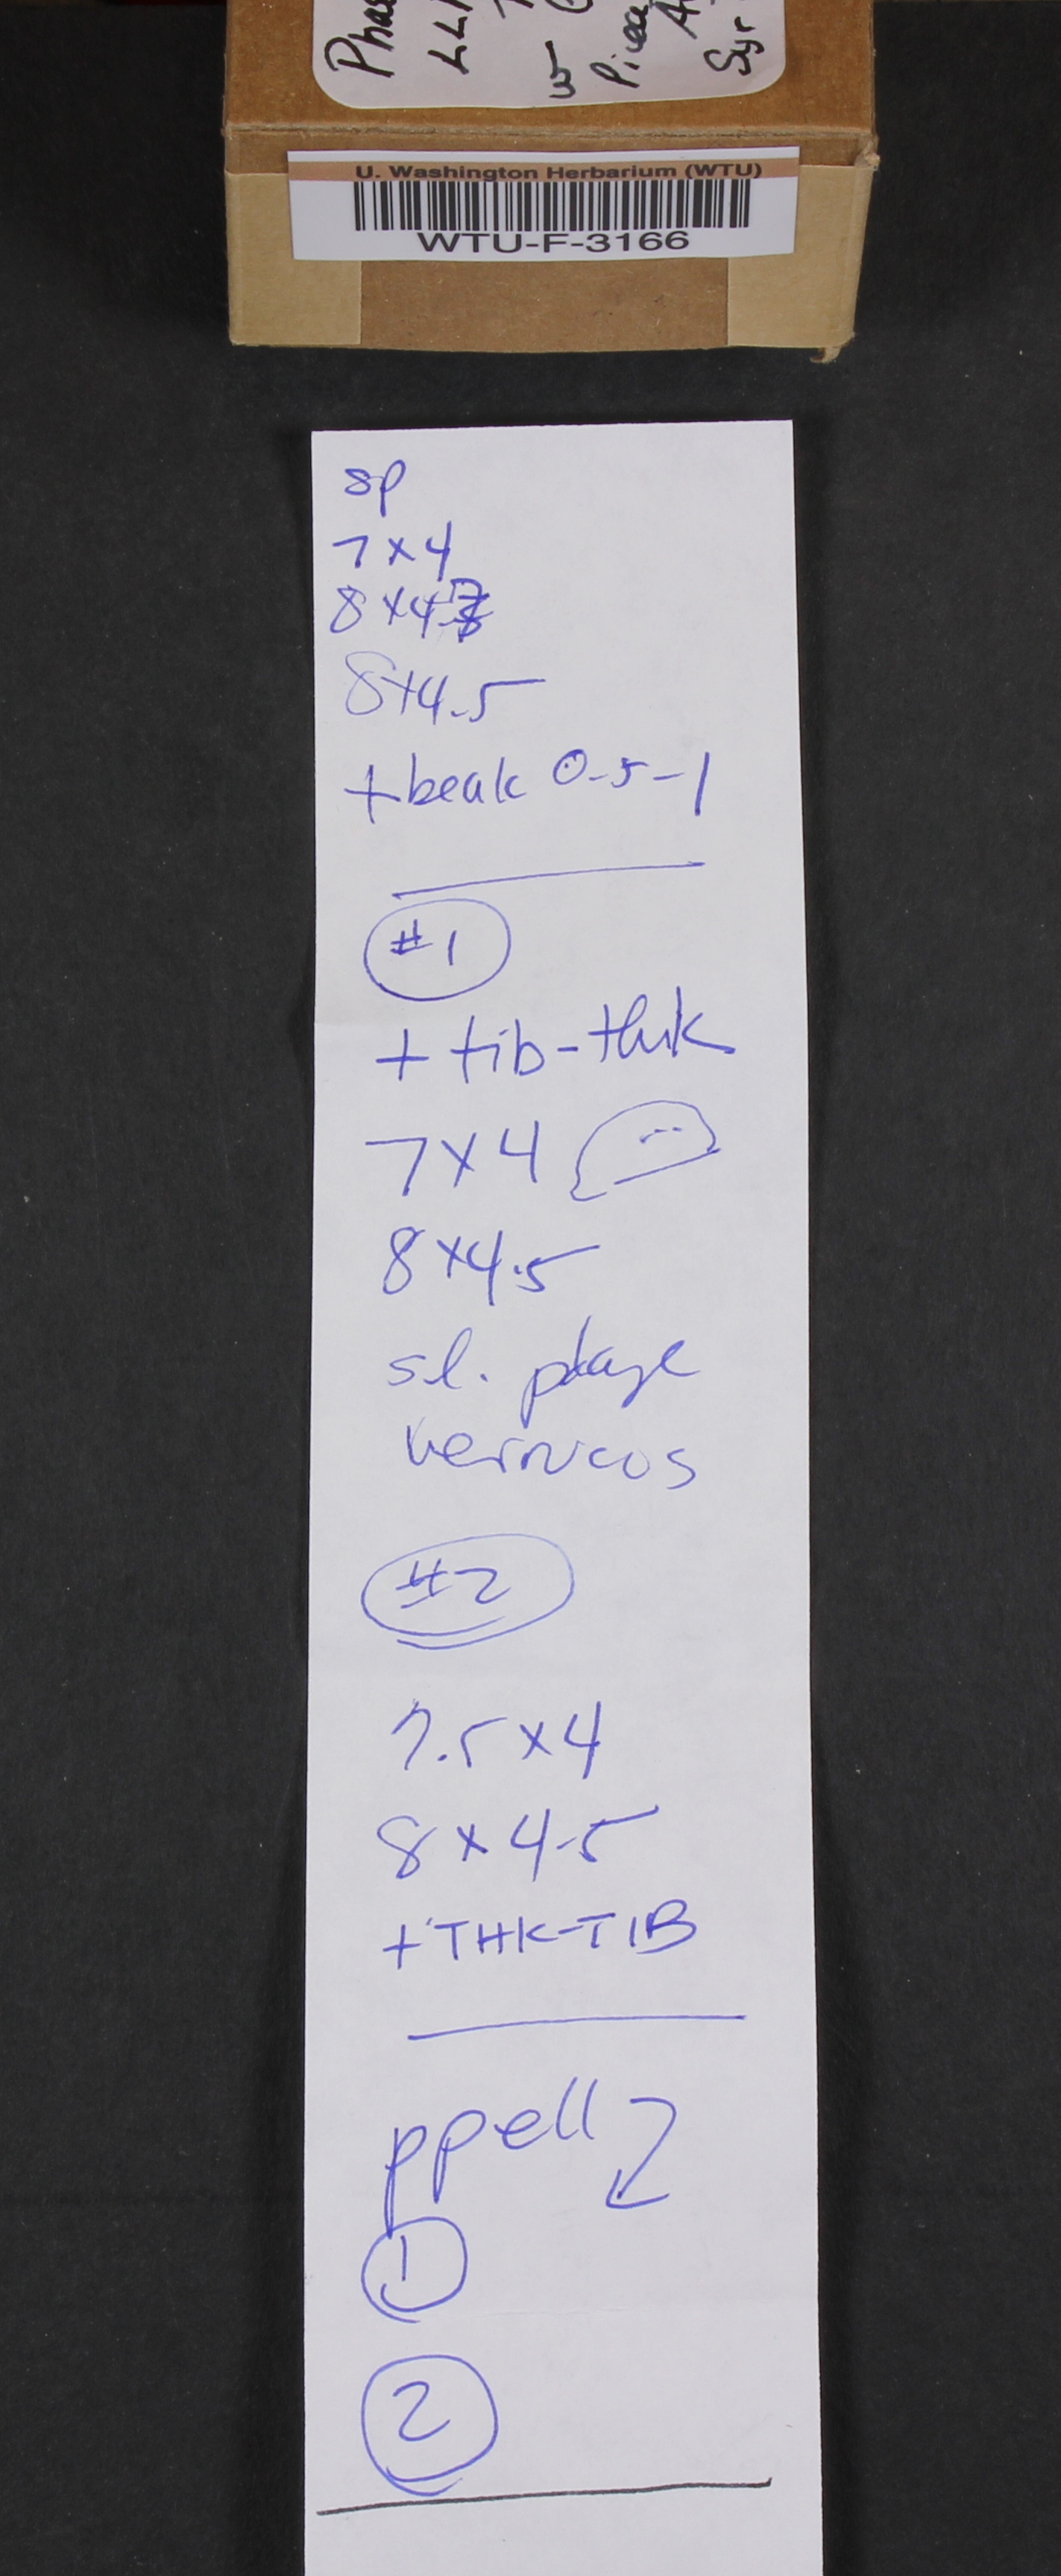 Phae
LLN
w
Picea
A
Syr
U. Washington Herbarium (WTU)
WTU-F-3166
sp
7×4
8×4.
8×4.5
+beak 0.5-1
#1
+ tib-thik
7×4
8×4.5
sl. plage
verrucos
#2
7.5×4
8×4.5
+THK-TIB
ppell
1
2